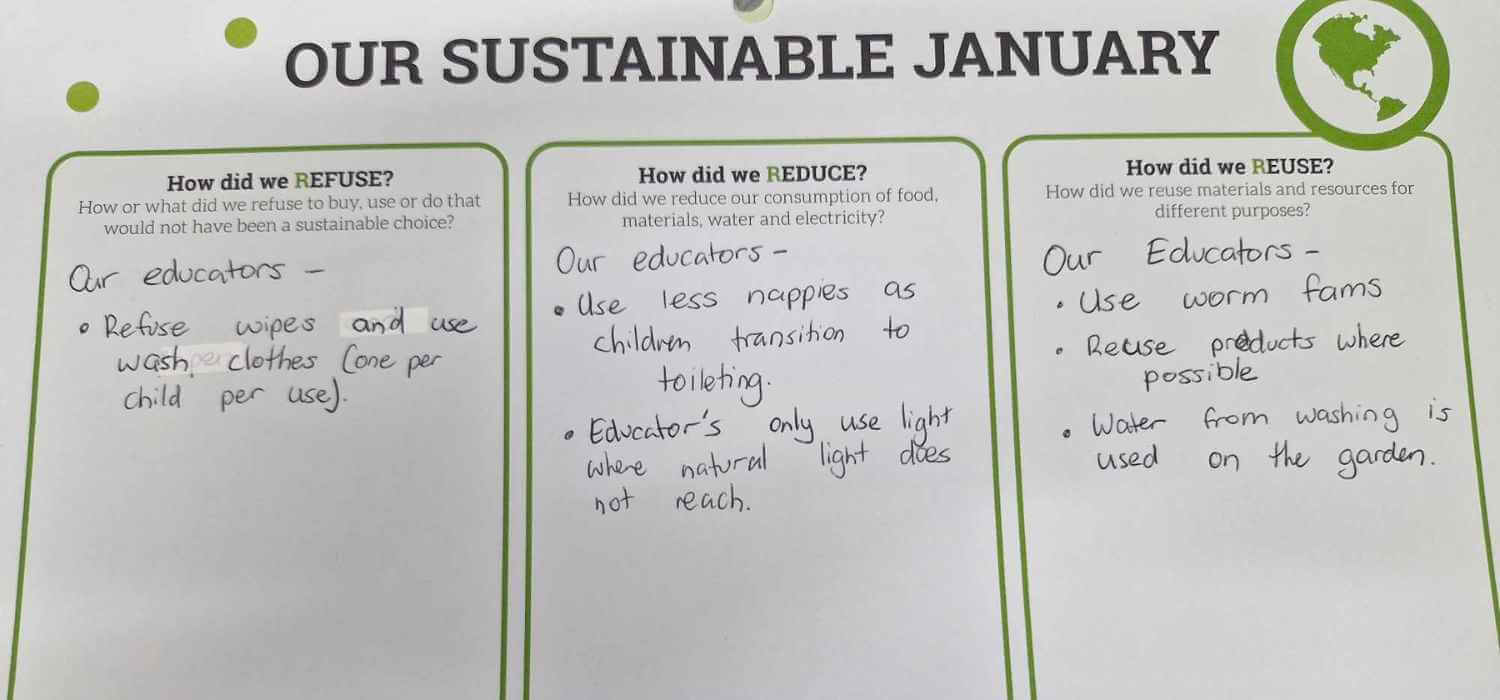 OUR SUSTAINABLE JANUARY
How did we REFUSE?
How or what did we refuse to buy, use or do that
would not have been a sustainable choice?
Our educators –
• Refuse wipes and use
wash clothes (one per
child per use).
How did we REDUCE?
How did we reduce our consumption of food,
materials, water and electricity?
Our educators –
• Use less nappies as
children transition to
toileting.
• Educator's only use light
where natural light does
not reach.
How did we REUSE?
How did we reuse materials and resources for
different purposes?
Our Educators –
• Use worm fams
• Reuse products where
possible
• Water from washing is
used on the garden.